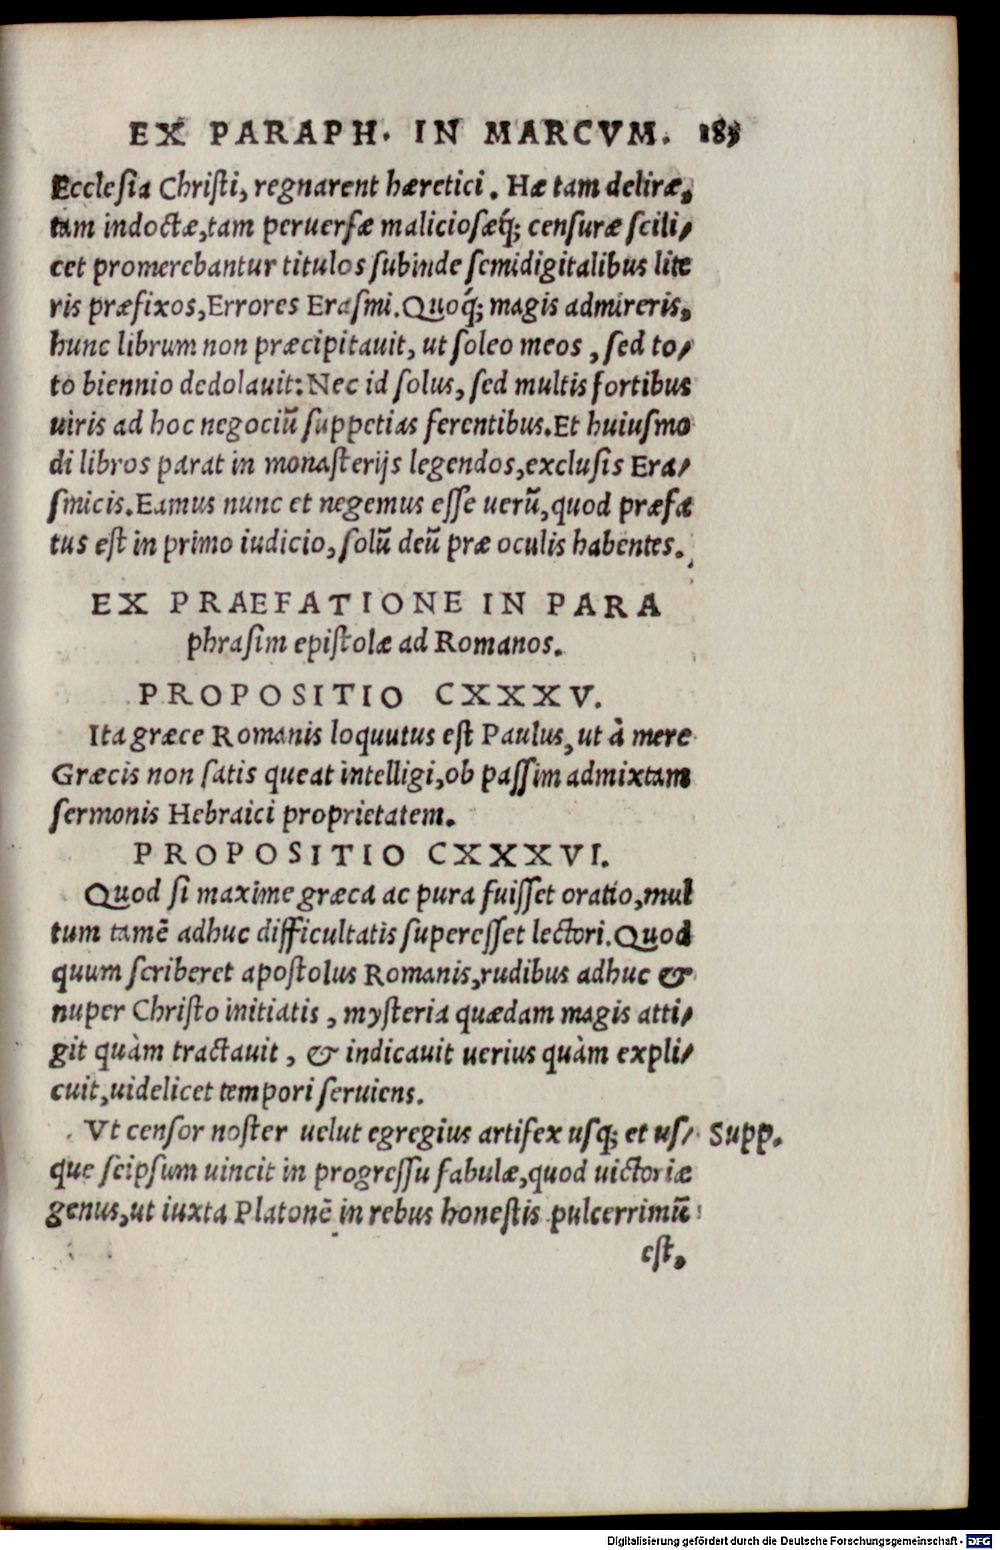 EX PARAPH. IN MARCVM. 185
Eccleſia Chriſti, regnarent hæretici. Hæ tam deliræ,
tam indoctæ, tam peruerſæ malicioſæq́; cenſuræ ſcili/
cet promerebantur titulos ſubinde ſemidigitalibus lite
ris præfixos, Errores Eraſmi. Quoq́; magis admireris,
hunc librum non præcipitauit, ut ſoleo meos, ſed to/
to biennio dedolauit: Nec id ſolus, ſed multis fortibus
uiris ad hoc negociũ ſuppetias ferentibus. Et huiuſmo
di libros parat in monaſterijs legendos, excluſis Era/
ſmicis. Eamus nunc et negemus eſſe uerũ, quod præfa
tus eſt in primo iudicio, ſolũ deũ præ oculis habentes.
EX PRAEFATIONE IN PARA
phraſim epiſtolæ ad Romanos.
PROPOSITIO CXXXV.
Ita græce Romanis loquutus eſt Paulus, ut à mere
Græcis non ſatis queat intelligi, ob paſſim admixtam
ſermonis Hebraici proprietatem.
PROPOSITIO CXXXVI.
Quod ſi maxime græca ac pura fuiſſet oratio, mul
tum tamẽ adhuc difficultatis ſupereſſet lectori. Quod
quum ſcriberet apoſtolus Romanis, rudibus adhuc &
nuper Chriſto initiatis, myſteria quædam magis atti/
git quàm tractauit, & indicauit uerius quàm expli/
cuit, uidelicet tempori ſeruiens.
Vt cenſor noſter uelut egregius artifex uſq; et uſ/ Supp.
que ſeipſum uincit in progreſſu fabulæ, quod uictoriæ
genus, ut iuxta Platonẽ in rebus honeſtis pulcerrimũ
eſt,
Digitalisierung gefördert durch die Deutsche Forschungsgemeinschaft - DFG